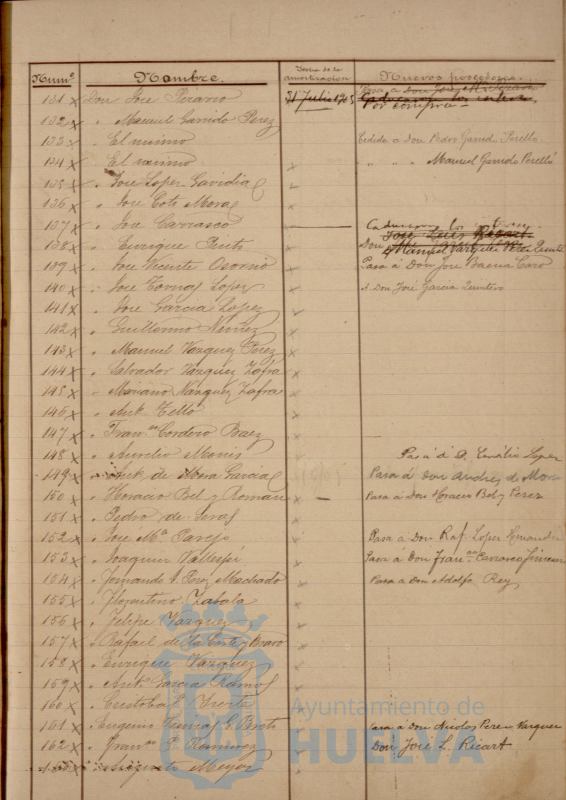 Numº Nombre. Fecha de la amortización Nuevos poseedores
131 Don Jose Pizarro 31 Julio 1903 Pasa a Don Jose por compra
132 " Manuel Garrido Perez
133 " El mismo Cedida a Don Pedro Garrido Perello
134 " El mismo " " " Manuel Garrido Perelló
135 " Jose Lopez Gavidia
136 " Jose Coto Mora
137 " Jose Carrasco
138 " Enrique Don Manuel Vazquez Perez
139 " Jose Vicente Osorno Pasa á Don José Baena Caro
140 " Jose Tomas Lopez A Don José Garcia Quintero
141 " Jose Garcia Lopez
142 " Guillermo Nuñez
143 " Manuel Vazquez Perez
144 " Salvador Vazquez Zafra
145 " Mariano Vazquez Zafra
146 " Antº Tello
147 " Franco Cordero Baez
148 " Aurelio Pasa á D. Lopez
149 " Antº de Mora Garcia Pasa á Don Andres de Mora
150 " Horacio Bel y Roman Pasa á Don Horacio Bel y Perez
151 " Pedro de
152 " Jose Mª Parejo Pasa á Don Raf. Lopez Hernandez
153 " Joaquin Vallespí Pasa á Don Franco Carrasco
154 " Fernando Perez Machado Pasa á Don Adolfo Rey
155 " Florentino Zabala
156 " Felipe Vazquez
157 " Rafael de la Corte y Bravo
158 " Enrique Vazquez
159 " Antº Garcia Ramos
160 " Cristobal
161 Eugenio Pasa á Don Nicolas Perez Vazquez
162 " Franco P. Ramirez Don José L. Ricart
163 " Augusto Meyer
Ayuntamiento de
HUELVA